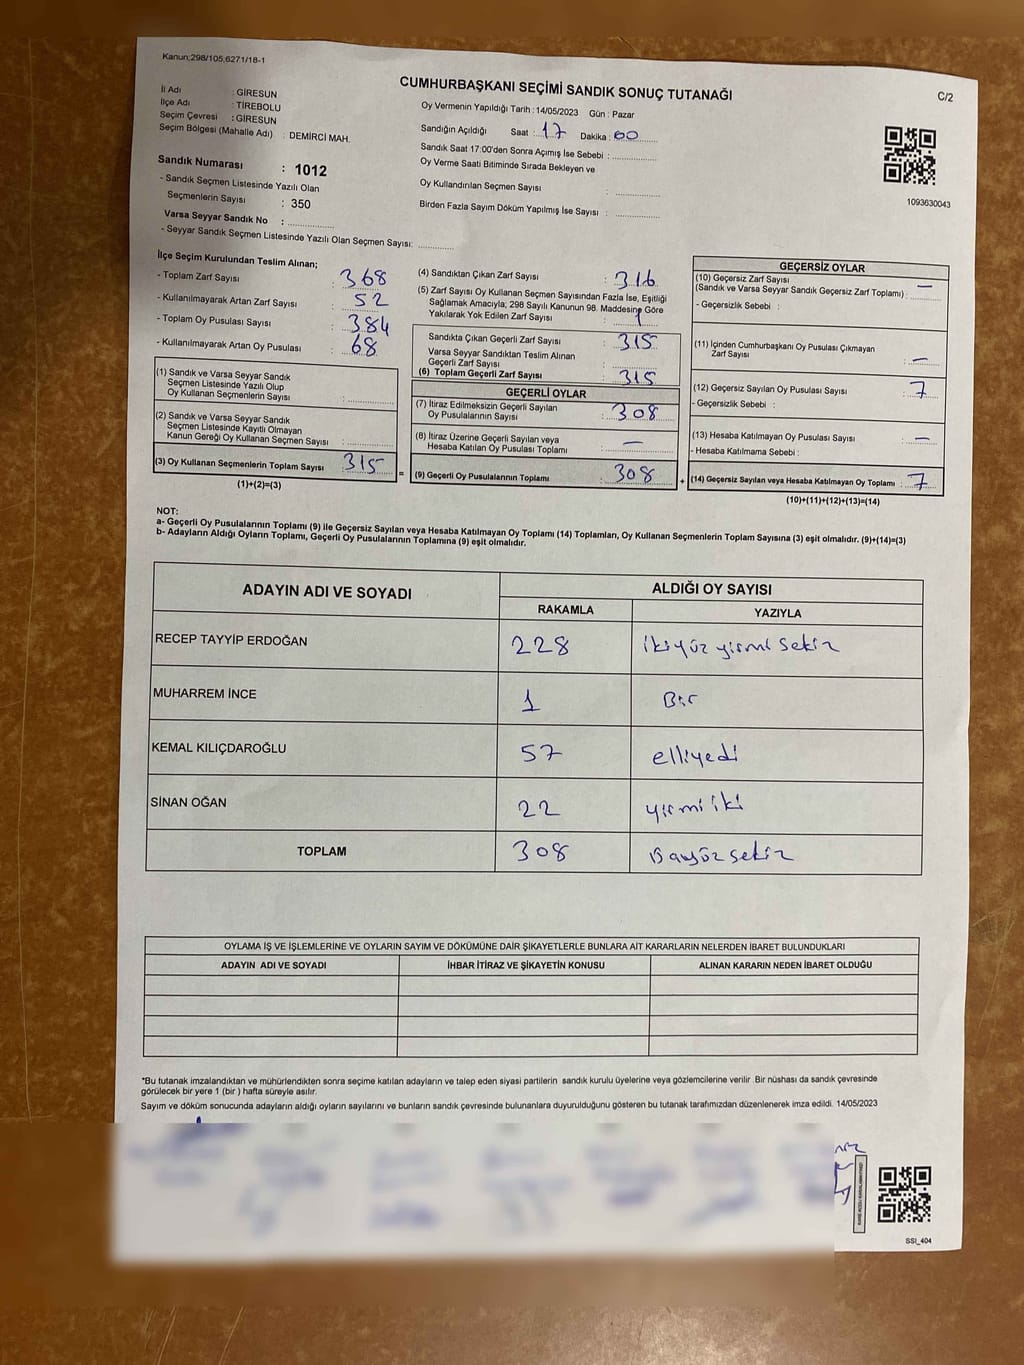 Kanun;298/105,6271/18-1
CUMHURBAŞKANI SEÇİMİ SANDIK SONUÇ TUTANAĞI
C/2
İl Adı : GİRESUN
İlçe Adı : TİREBOLU
Seçim Çevresi : GİRESUN
Seçim Bölgesi (Mahalle Adı) : DEMİRCİ MAH.
Sandık Numarası : 1012
- Sandık Seçmen Listesinde Yazılı Olan
Seçmenlerin Sayısı : 350
Varsa Seyyar Sandık No : ..............
- Seyyar Sandık Seçmen Listesinde Yazılı Olan Seçmen Sayısı: ..........
Oy Vermenin Yapıldığı Tarih : 14/05/2023 Gün : Pazar
Sandığın Açıldığı Saat : 17 Dakika : 00
Sandık Saat 17:00'den Sonra Açımış İse Sebebi : ............
Oy Verme Saati Bitiminde Sırada Bekleyen ve
Oy Kullandırılan Seçmen Sayısı : ............
Birden Fazla Sayım Döküm Yapılmış İse Sayısı : ............
1093630043
İlçe Seçim Kurulundan Teslim Alınan;
- Toplam Zarf Sayısı : 368
- Kullanılmayarak Artan Zarf Sayısı : 52
- Toplam Oy Pusulası Sayısı : 384
- Kullanılmayarak Artan Oy Pusulası : 68
(1) Sandık ve Varsa Seyyar Sandık
Seçmen Listesinde Yazılı Olup
Oy Kullanan Seçmenlerin Sayısı : ............
(2) Sandık ve Varsa Seyyar Sandık
Seçmen Listesinde Kayıtlı Olmayan
Kanun Gereği Oy Kullanan Seçmen Sayısı : ............
(3) Oy Kullanan Seçmenlerin Toplam Sayısı : 315
(1)+(2)=(3)
=
(4) Sandıktan Çıkan Zarf Sayısı : 316
(5) Zarf Sayısı Oy Kullanan Seçmen Sayısından Fazla İse, Eşitliği
Sağlamak Amacıyla; 298 Sayılı Kanunun 98. Maddesine Göre
Yakılarak Yok Edilen Zarf Sayısı : 1
Sandıkta Çıkan Geçerli Zarf Sayısı : 315
Varsa Seyyar Sandıktan Teslim Alınan
Geçerli Zarf Sayısı : ............
(6) Toplam Geçerli Zarf Sayısı : 315
GEÇERLİ OYLAR
(7) İtiraz Edilmeksizin Geçerli Sayılan
Oy Pusulalarının Sayısı : 308
(8) İtiraz Üzerine Geçerli Sayılan veya
Hesaba Katılan Oy Pusulası Toplamı : —
(9) Geçerli Oy Pusulalarının Toplamı : 308
+
GEÇERSİZ OYLAR
(10) Geçersiz Zarf Sayısı
(Sandık ve Varsa Seyyar Sandık Geçersiz Zarf Toplamı) : —
- Geçersizlik Sebebi :
(11) İçinden Cumhurbaşkanı Oy Pusulası Çıkmayan
Zarf Sayısı : —
(12) Geçersiz Sayılan Oy Pusulası Sayısı : 7
- Geçersizlik Sebebi :
(13) Hesaba Katılmayan Oy Pusulası Sayısı : —
- Hesaba Katılmama Sebebi :
(14) Geçersiz Sayılan veya Hesaba Katılmayan Oy Toplamı : 7
(10)+(11)+(12)+(13)=(14)
NOT:
a- Geçerli Oy Pusulalarının Toplamı (9) ile Geçersiz Sayılan veya Hesaba Katılmayan Oy Toplamı (14) Toplamları, Oy Kullanan Seçmenlerin Toplam Sayısına (3) eşit olmalıdır. (9)+(14)=(3)
b- Adayların Aldığı Oyların Toplamı, Geçerli Oy Pusulalarının Toplamına (9) eşit olmalıdır.
ADAYIN ADI VE SOYADI ALDIĞI OY SAYISI
RAKAMLA YAZIYLA
RECEP TAYYİP ERDOĞAN 228 ikiyüz yirmi sekiz
MUHARREM İNCE 1 Bir
KEMAL KILIÇDAROĞLU 57 elliyedi
SİNAN OĞAN 22 yirmi iki
TOPLAM 308 üçyüz sekiz
OYLAMA İŞ VE İŞLEMLERİNE VE OYLARIN SAYIM VE DÖKÜMÜNE DAİR ŞİKAYETLERLE BUNLARA AİT KARARLARIN NELERDEN İBARET BULUNDUKLARI
ADAYIN ADI VE SOYADI İHBAR İTİRAZ VE ŞİKAYETİN KONUSU ALINAN KARARIN NEDEN İBARET OLDUĞU
*Bu tutanak imzalandıktan ve mühürlendikten sonra seçime katılan adayların ve talep eden siyasi partilerin sandık kurulu üyelerine veya gözlemcilerine verilir .Bir nüshası da sandık çevresinde
görülecek bir yere 1 (bir ) hafta süreyle asılır.
Sayım ve döküm sonucunda adayların aldığı oyların sayılarını ve bunların sandık çevresinde bulunanlara duyurulduğunu gösteren bu tutanak tarafımızdan düzenlenerek imza edildi. 14/05/2023
SSI_404